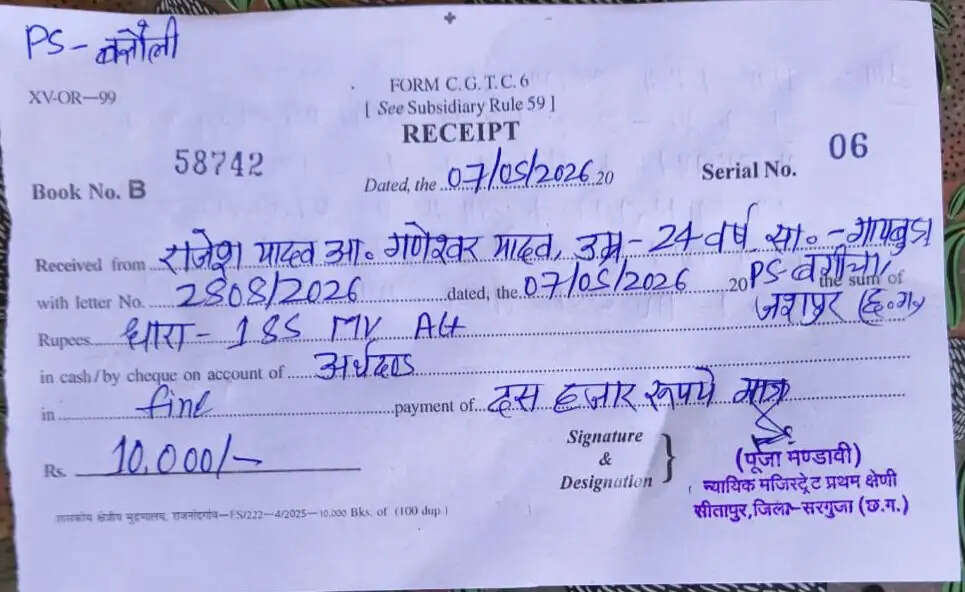 PS - बतौली
XV-OR—99
FORM C.G.T.C. 6
[ See Subsidiary Rule 59 ]
RECEIPT
Book No. B 58742
Dated, the 07/05/2026 20
Serial No. 06
Received from राजेश यादव आ. गणेश्वर यादव, उम्र - 24 वर्ष सा. -
with letter No. 2808/2026 dated, the 07/05/2026 20 the sum of
PS - बगीचा,
जशपुर (छ.ग.)
Rupees धारा - 185 MV Act
in cash/by cheque on account of अर्थदण्ड
in fine payment of दस हजार रूपये मात्र
Rs. 10,000/-
Signature
&
Designation
(पूजा मण्डावी)
न्यायिक मजिस्ट्रेट प्रथम श्रेणी
सीतापुर, जिला-सरगुजा (छ.ग.)
शासकीय क्षेत्रीय मुद्रणालय, राजनांदगांव—FS/222—4/2025—10,000 Bks. of (100 dup.)